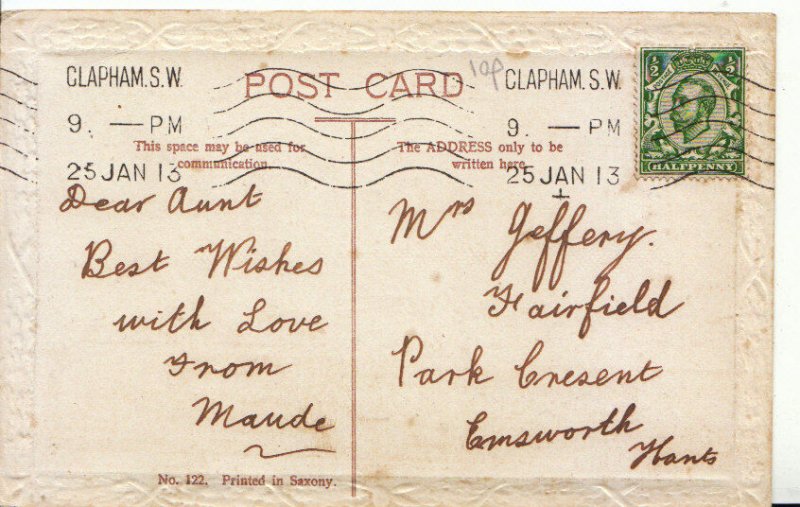 CLAPHAM.S.W.
9. — PM
25 JAN 13
POST CARD
10p
CLAPHAM.S.W.
9. — PM
25 JAN 13
½ ½
HALFPENNY
This space may be used for
communication.
The ADDRESS only to be
written here.
Dear Aunt
Best Wishes
with Love
From
Maude
Mrs Jeffery.
Fairfield
Park Cresent
Emsworth
Hants
No. 122. Printed in Saxony.